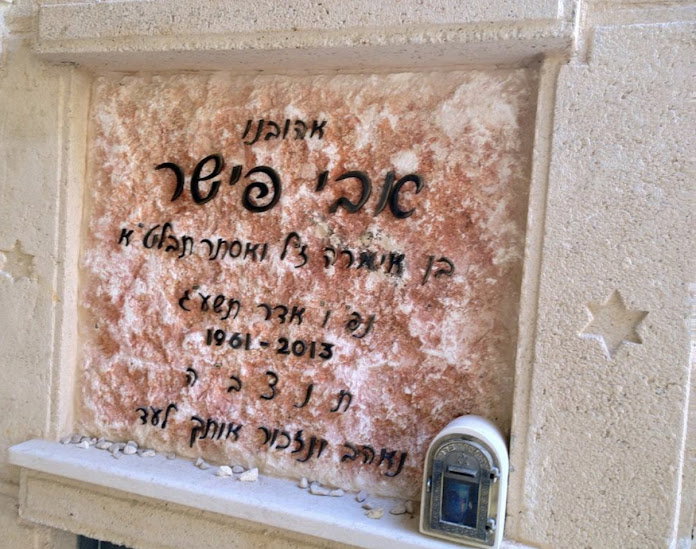 אהובנו
אבי פישר
בן אימרה ז"ל ואסתר תבלט"א
נפ' ו' אדר תשע"ג
1961-2013
ת נ צ ב ה
נאהב ונזכור אותך לעד